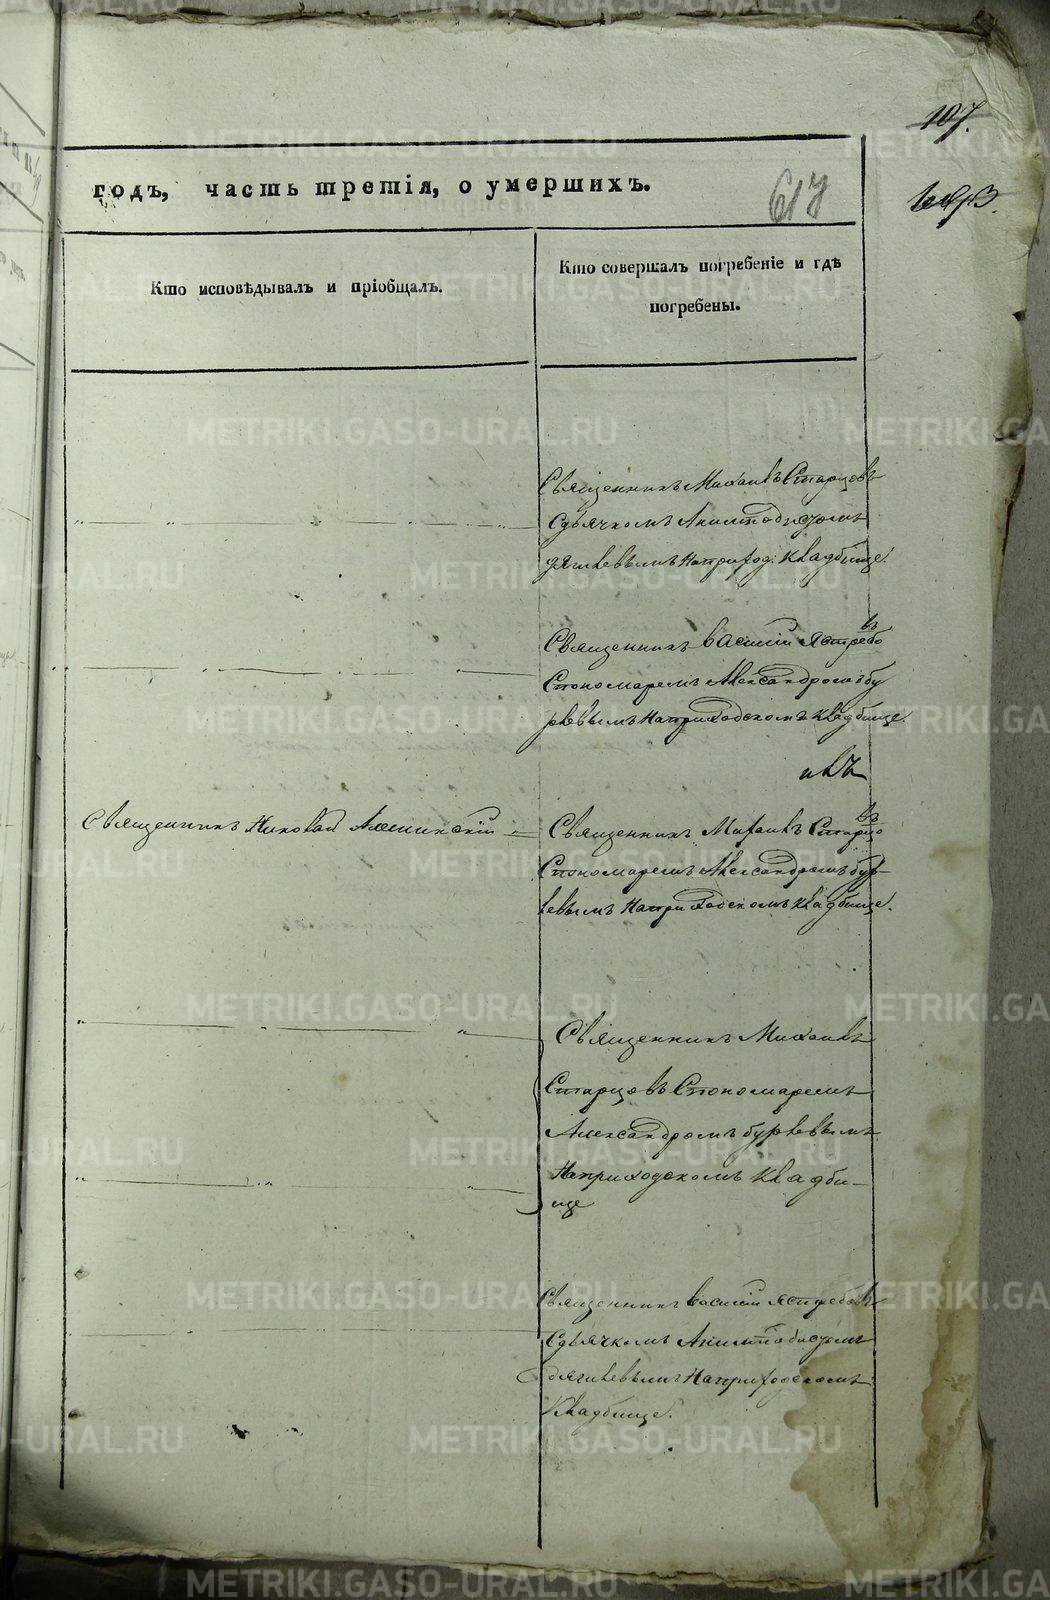 107.
годъ, часть третія, о умершихъ.
617
Кто исповѣдывалъ и пріобщалъ.
Кто совершалъ погребеніе и гдѣ
погребены.
Священникъ Михаилъ Старцовъ
Сдьячкомъ
Наприход: Кладбище.
Священникъ Василій Ястребо
въ
Спономаремъ Александромъ Бу
рлевымъ Наприходскомъ Кладбище.
Священникъ Николай
Священникъ Михаилъ Старцо
въ
Спономаремъ Александромъ Бур-
левымъ Наприходскомъ Кладбище.
Священникъ Михаилъ
Старцовъ Спономаремъ
Александромъ Бурлевымъ
Наприходскомъ Кладби-
ще
Священникъ Василій Ястребовъ
Сдьячкомъ
Наприходскомъ
Кладбище.
METRIKI.GASO-URAL.RU